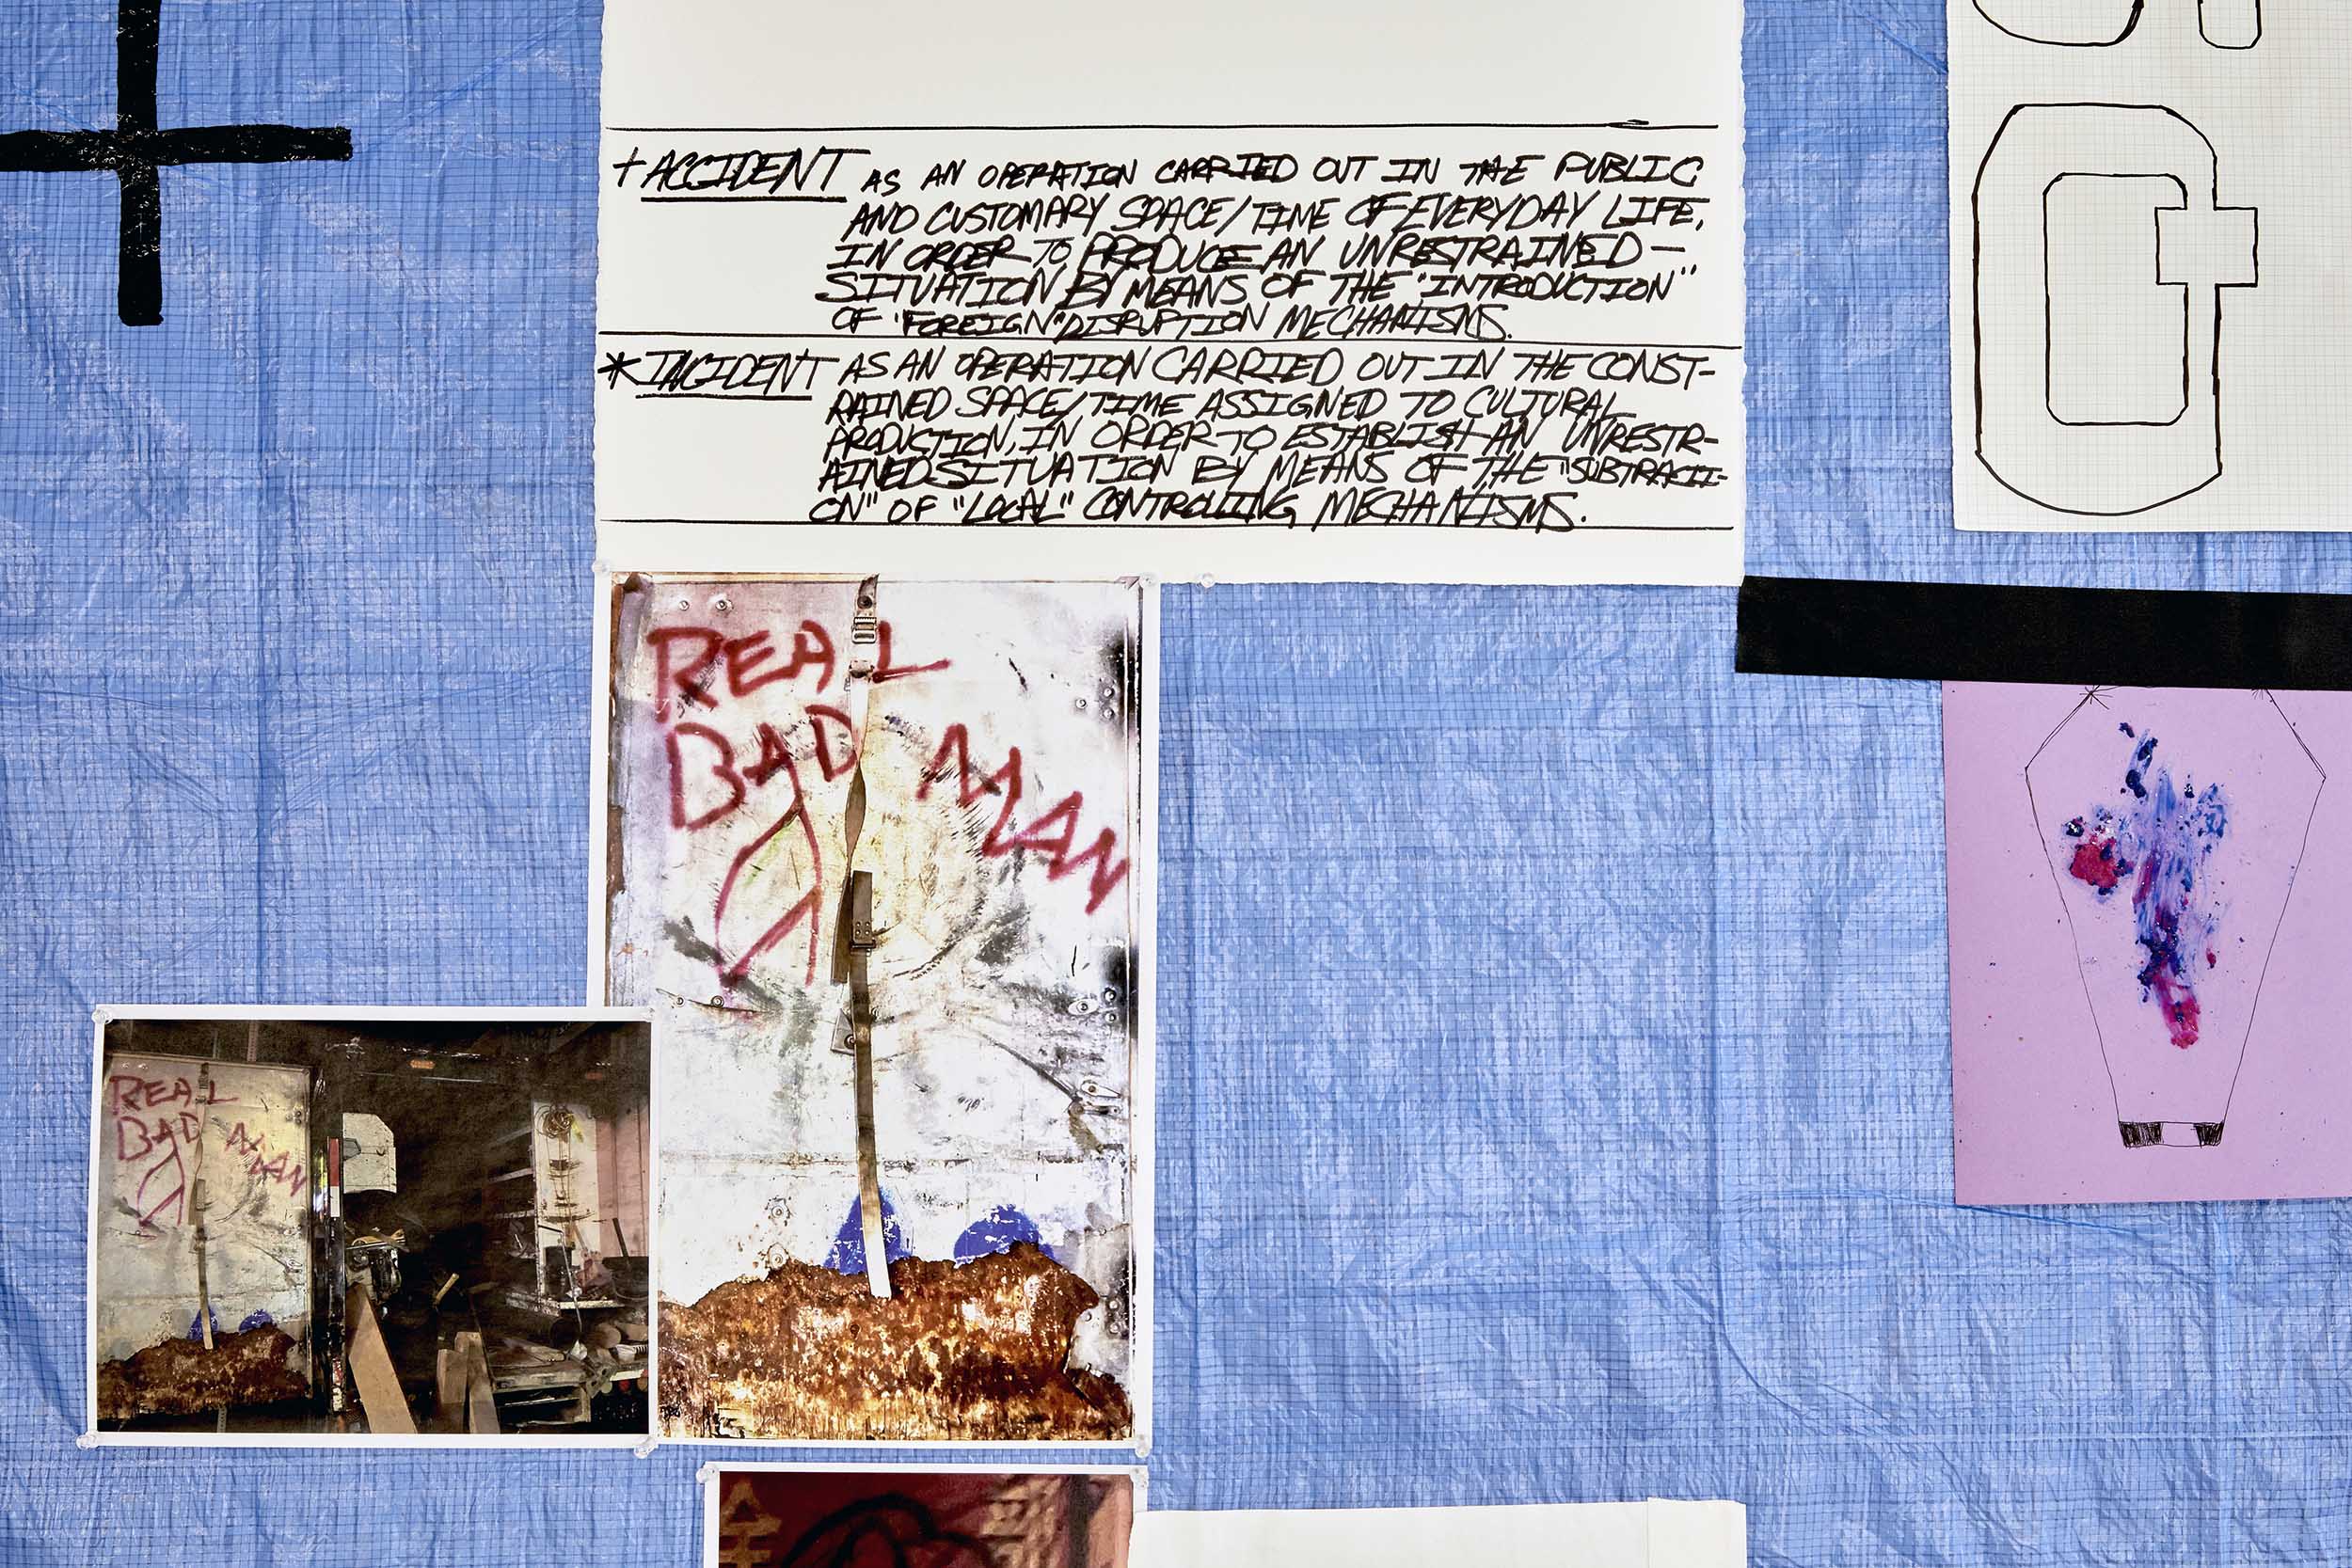 +ACCIDENT AS AN OPERATION CARRIED OUT IN THE PUBLIC
AND CUSTOMARY SPACE/TIME OF EVERYDAY LIFE,
IN ORDER TO PRODUCE AN UNRESTRAINED-
SITUATION BY MEANS OF THE "INTRODUCTION"
OF "FOREIGN" DISRUPTION MECHANISMS.
*INCIDENT AS AN OPERATION CARRIED OUT IN THE CONST-
RAINED SPACE/TIME ASSIGNED TO CULTURAL
PRODUCTION, IN ORDER TO ESTABLISH AN UNRESTR-
AINED SITUATION BY MEANS OF THE "SUBTRACTI-
ON" OF "LOCAL" CONTROLLING MECHANISMS.
REAL
BAD MAN
REAL
BAD MAN